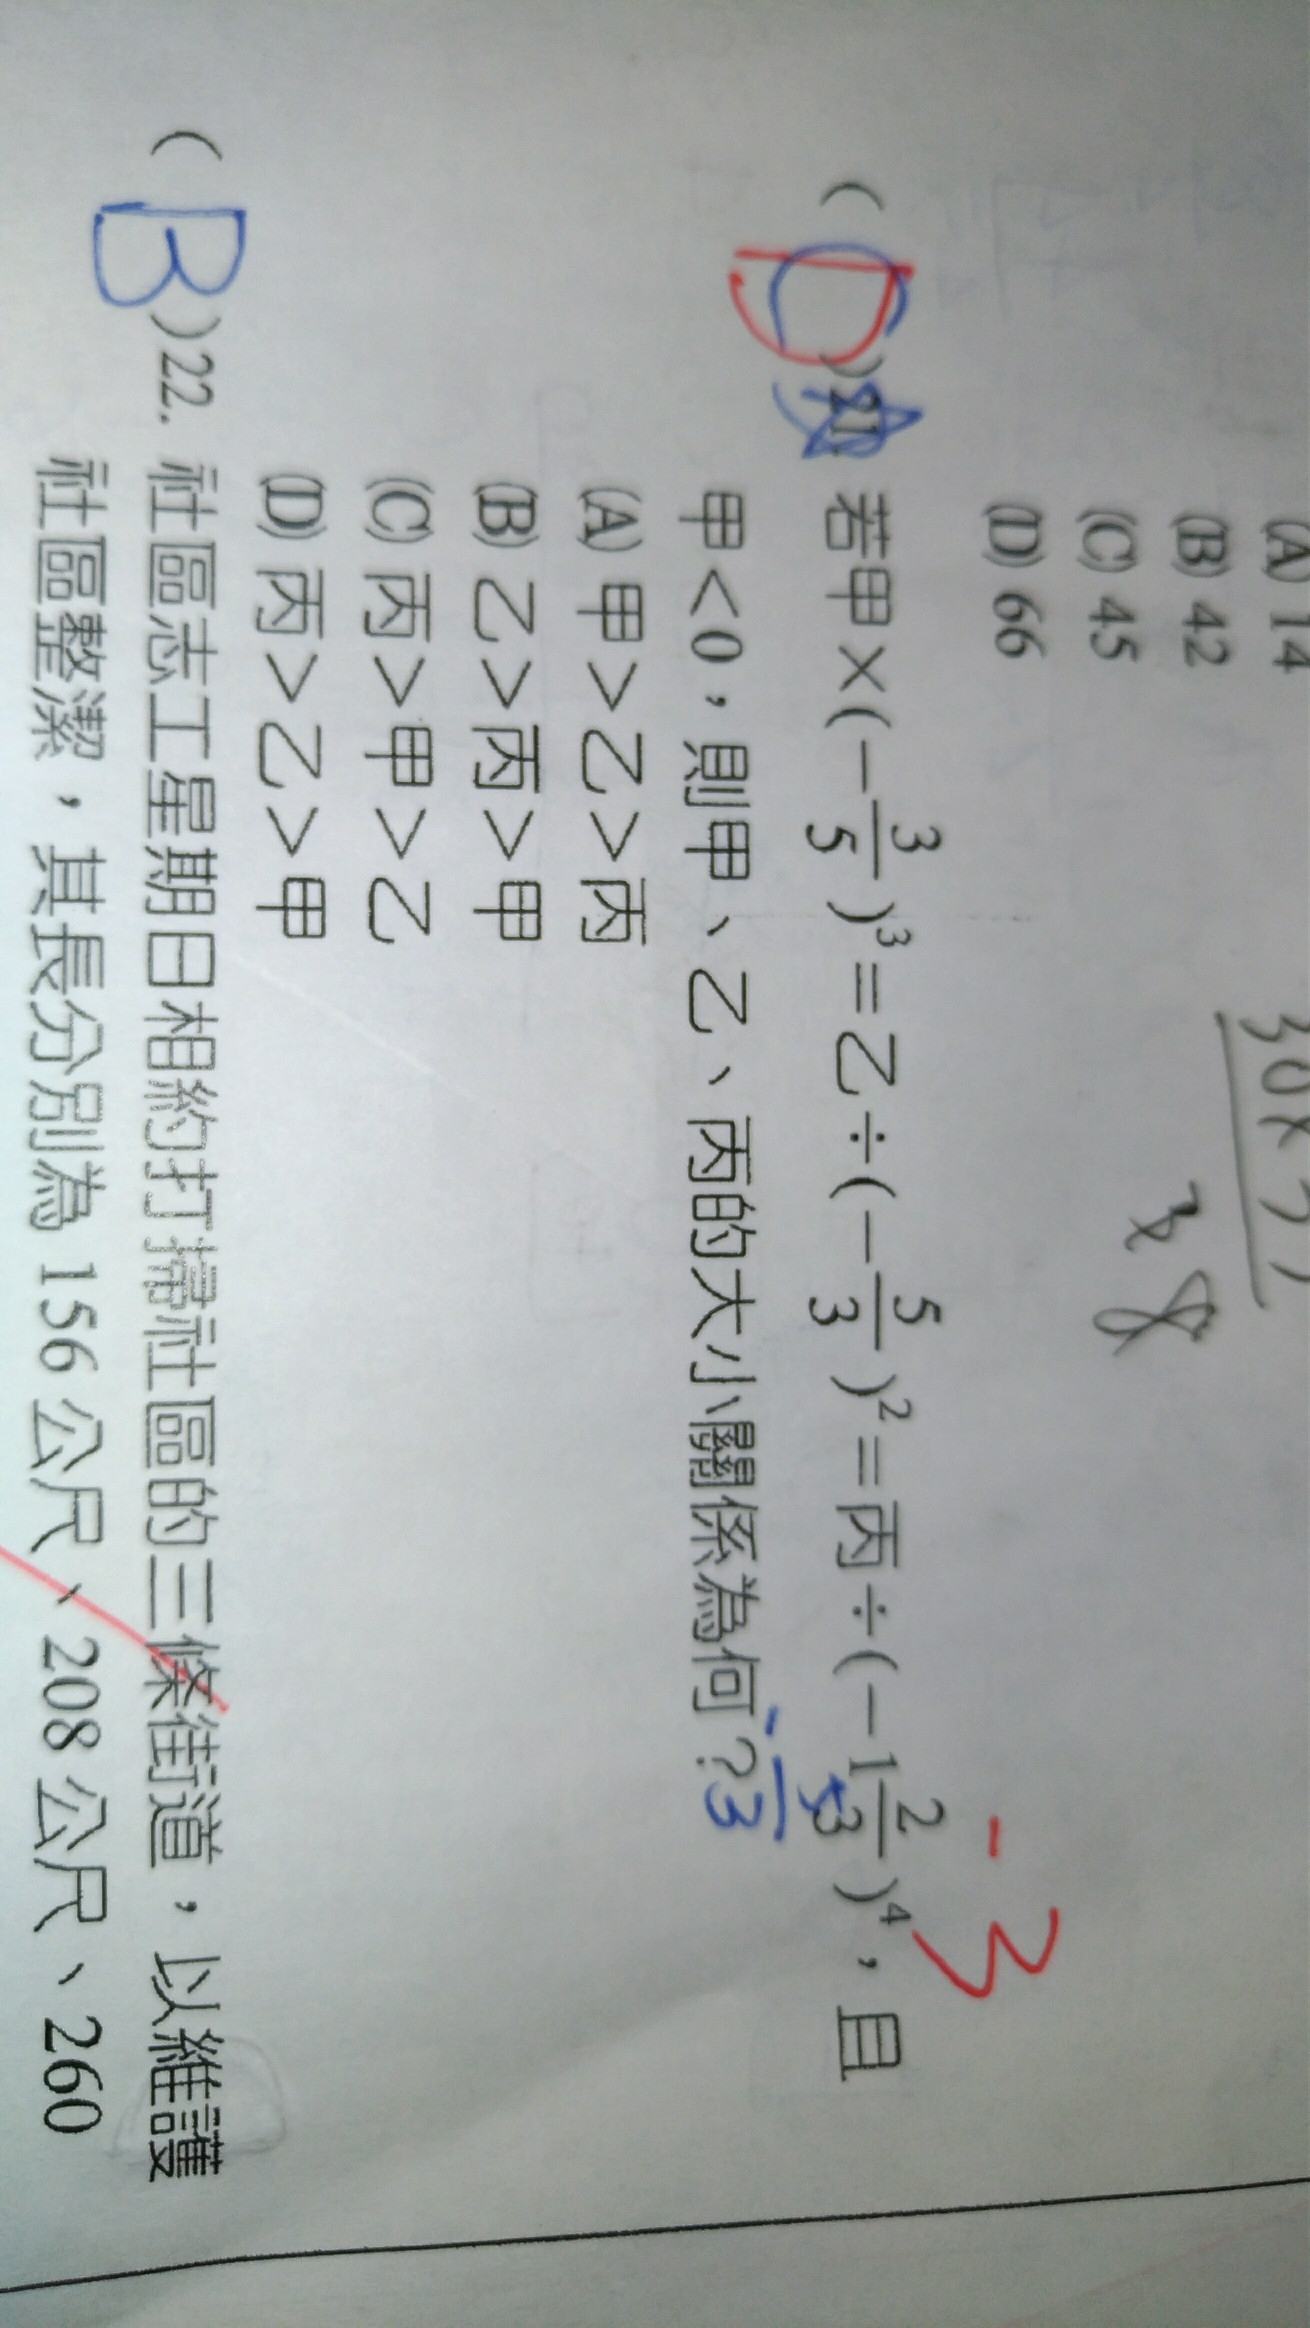 (A) 14
(B) 42
(C) 45
(D) 66
8
( D )21. 若甲×(−3/5)³=乙÷(−5/3)²=丙÷(−1 2/3)⁴，且
甲<0，則甲、乙、丙的大小關係為何？
-3
3
(A) 甲>乙>丙
(B) 乙>丙>甲
(C) 丙>甲>乙
(D) 丙>乙>甲
( B )22. 社區志工星期日相約打掃社區的三條街道，以維護
社區整潔，其長分別為 156 公尺、208 公尺、260